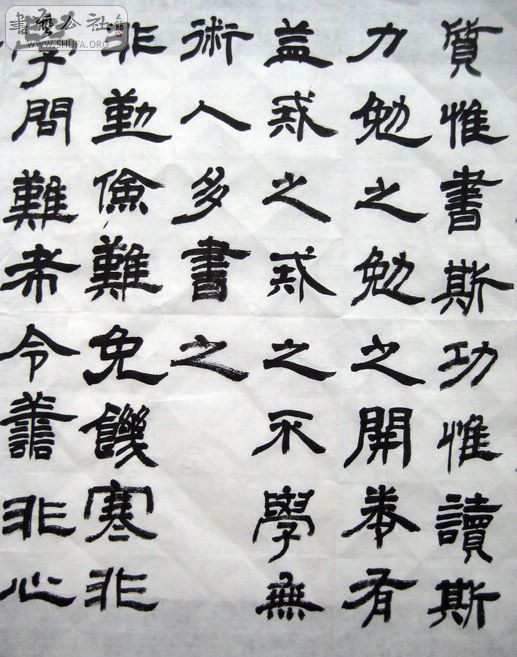 質惟書斯功惟讀斯
力勉之勉之開卷有
益戒之戒之不學無
術人多書之
非勤儉難免饑寒非
學問難希令譱非心
公社
WWW.SHUFA.ORG